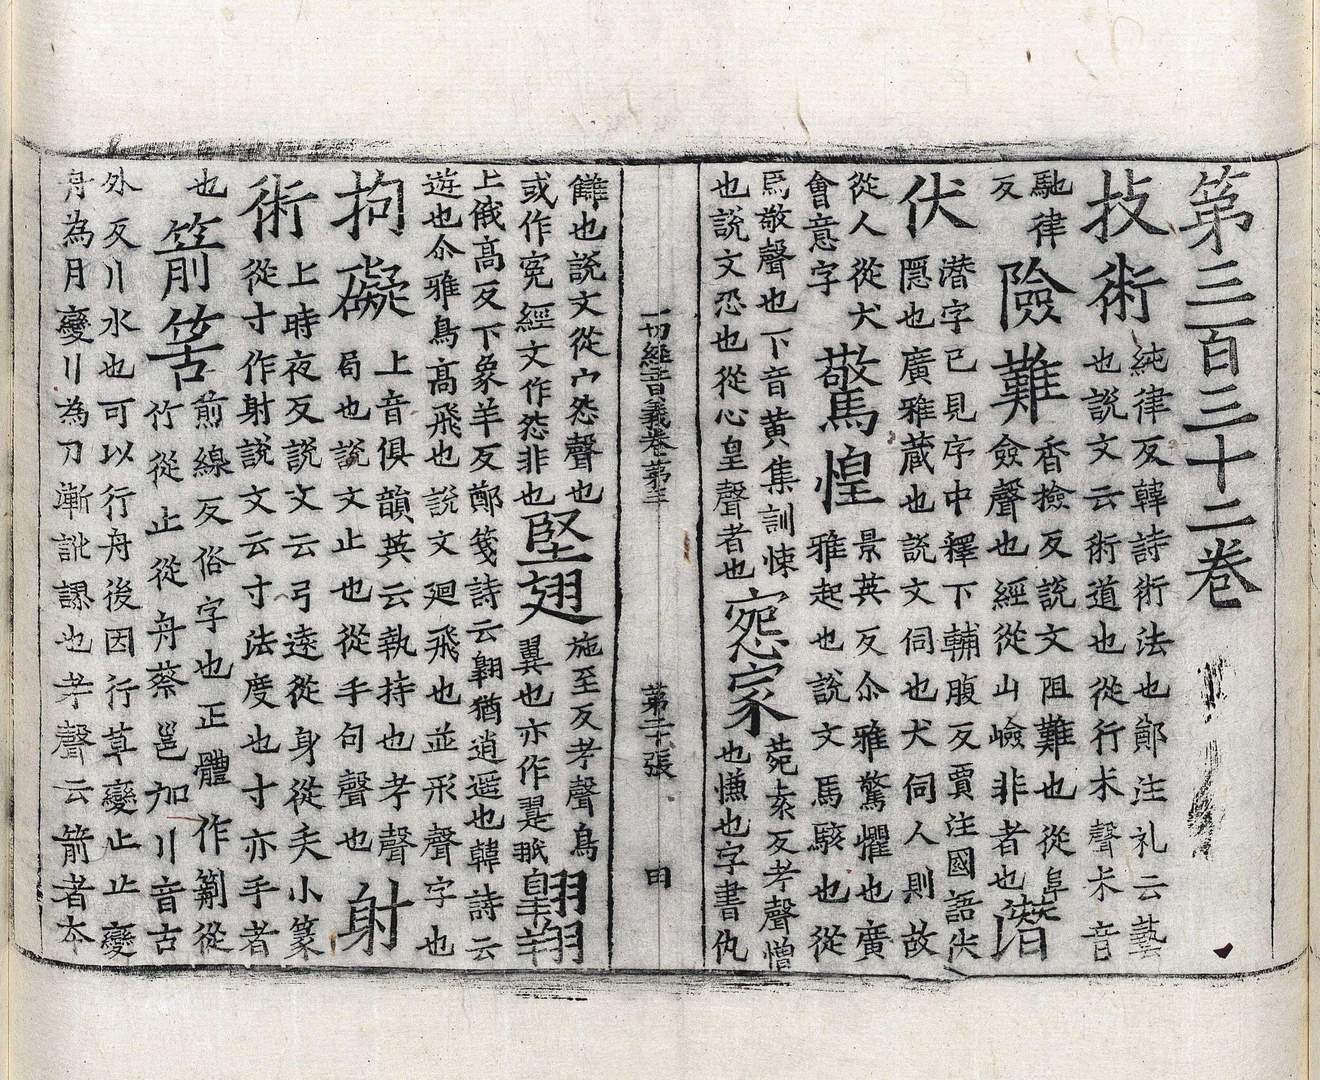 第三百三十二卷
技術純律反韓詩術法也鄭注礼云藝也說文云術道也從行术聲术音
馳律反險難香撿反說文阻難也從阜僉聲也經從山嶮非者也潛
伏潛字已見序中釋下輔腹反賈注國語伏隱也廣雅蔵也説文伺也犬伺人則故
從人從犬會意字驚惶景英反尒雅驚懼也廣雅起也說文馬駭也從
馬敬聲也下音黄集訓悚也說文恐也從心皇聲者也怨家菀袁反考聲憎也慊也字書仇
一切經音義卷第三
第二十張
讎也說文從宀怨聲也或作寃經文作怨非也堅翅施至反考聲鳥翼也亦作翨翺翔
上俄高反下象羊反鄭箋詩云翺猶逍遥也韓詩云遊也尒雅鳥高飛也說文廻飛也並形聲字也
拘礙上音俱韻英云執持也考聲局也說文止也從手句聲也射
術上時夜反說文云弓遠從身從矢小篆從寸作射說文云寸法度也寸亦手者
也箭筈煎線反俗字也正體作從竹從止從舟蔡邕加巜音古
外反巜水也可以行舟後因行草變止止變舟為月變巜為刀漸訛謬也考聲云箭者本